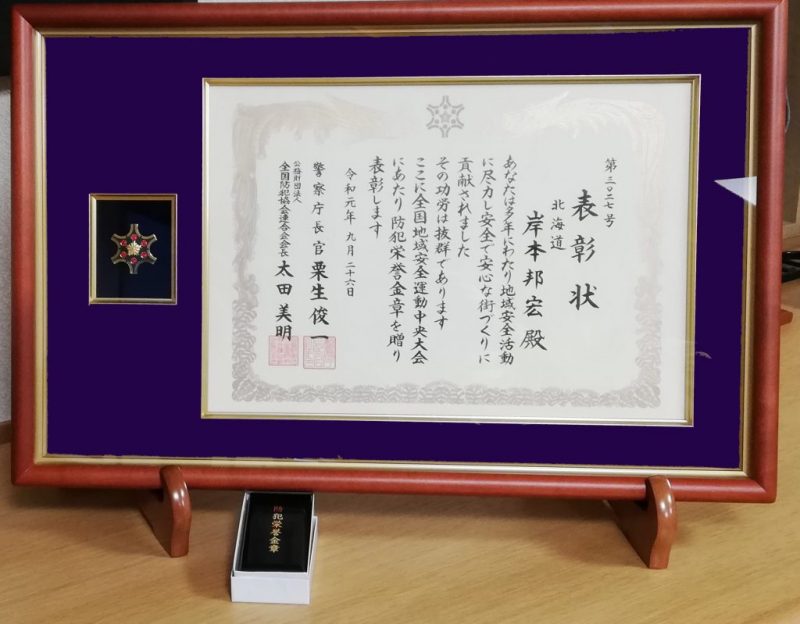 第三〇二七号
表彰状
北海道
岸本邦宏殿
あなたは多年にわたり地域安全活動
に尽力し安全で安心な街づくりに
貢献されました
その功労は抜群であります
ここに全国地域安全運動中央大会
にあたり防犯栄誉金章を贈り
表彰します
令和元年九月二十六日
警察庁長官 栗生俊一
公益財団法人
全国防犯協会連合会会長 太田美明
防犯栄誉金章